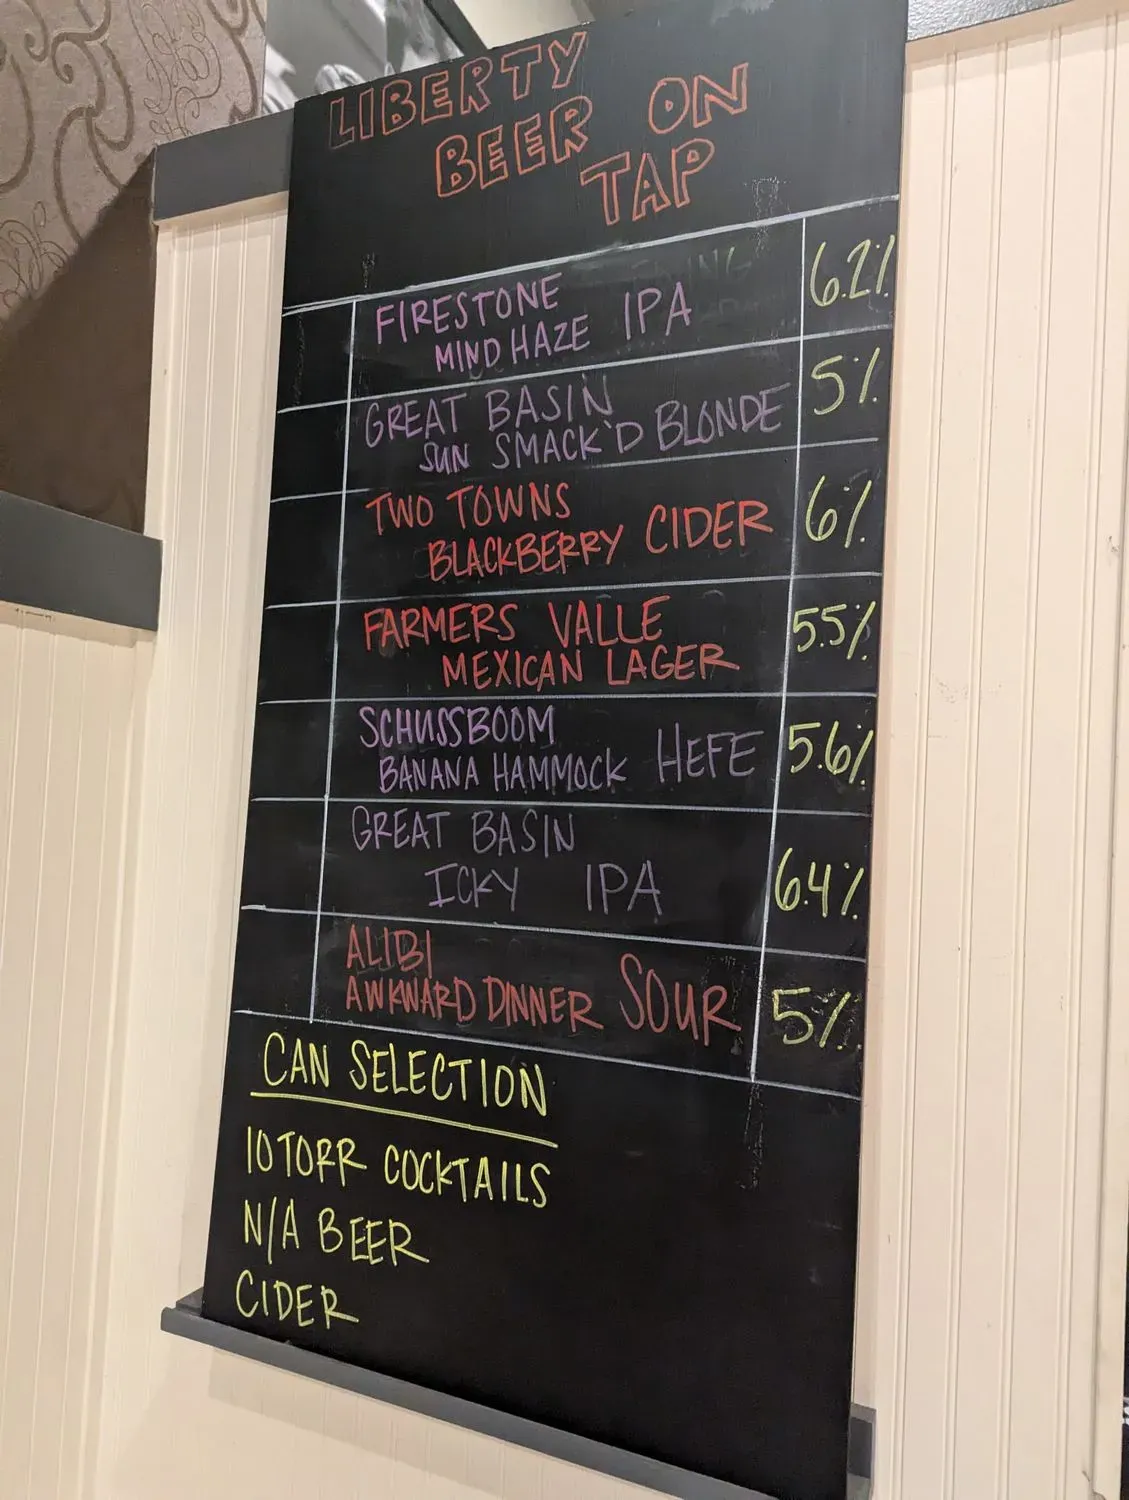 LIBERTY
BEER ON
TAP
FIRESTONE
MIND HAZE IPA
6.2%
GREAT BASIN
SUN SMACK'D BLONDE
5%
TWO TOWNS
BLACKBERRY CIDER
6%
FARMERS VALLE
MEXICAN LAGER
5.5%
SCHUSSBOOM
BANANA HAMMOCK HEFE
5.6%
GREAT BASIN
ICKY IPA
6.4%
ALIBI
AWKWARD DINNER SOUR
5%
CAN SELECTION
10 TORR COCKTAILS
N/A BEER
CIDER